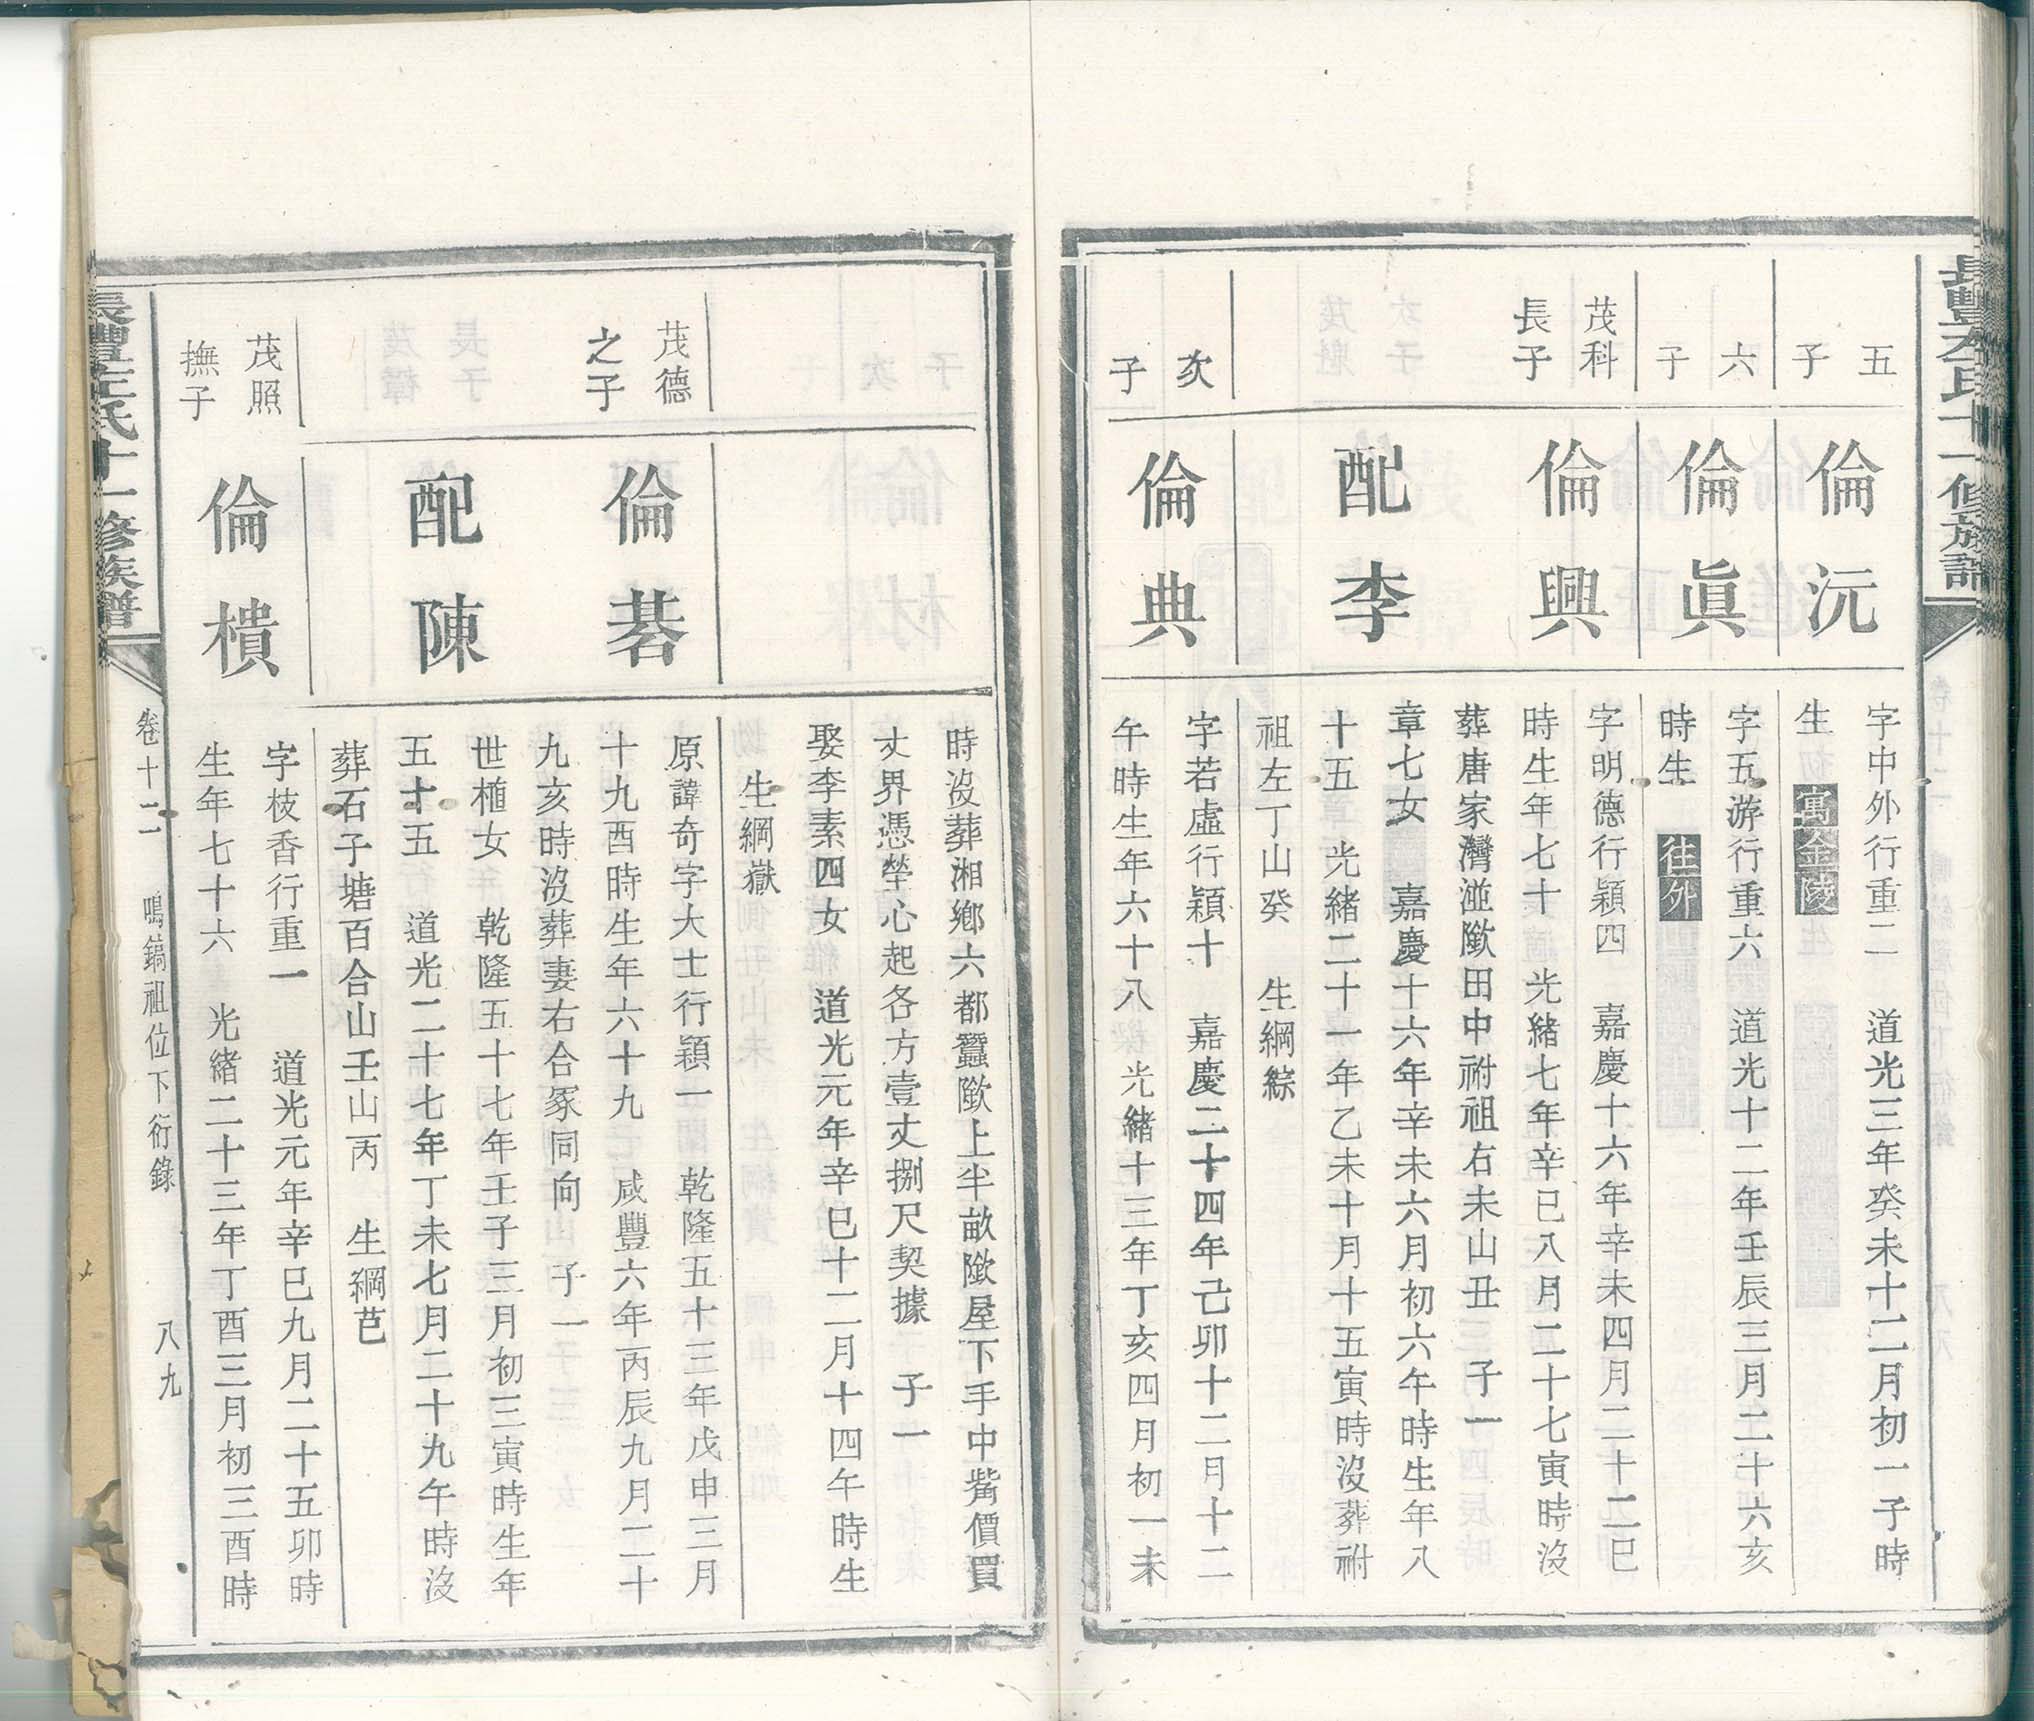 五子
倫沅
字中外行重二 道光三年癸未十二月初一子時
生 寓金陵
六子
倫眞
字五游行重六 道光十二年壬辰三月二十六亥
時生 往外
茂科長子
倫興
字明德行穎四 嘉慶十六年辛未四月二十二巳
時生年七十 光緒七年辛巳八月二十七寅時沒
葬唐家灣逧塅田中祔祖右未山丑 子一
配李
章七女 嘉慶十六年辛未六月初六午時生年八
十五 光緒二十一年乙未十月十五寅時沒葬祔
祖左丁山癸 生綱綜
次子
倫典
字若虛行穎十 嘉慶二十四年己卯十二月十二
午時生年六十八 光緒十三年丁亥四月初一未
時沒葬湘鄉六都蠶塅上半畝塅屋下手中嘴價買
丈界憑塋心起各方壹丈捌尺契據 子一
娶李素四女 道光元年辛巳十二月十四午時生
生綱嶽
茂德之子
倫碁
原諱奇字大士行穎一 乾隆五十三年戊申三月
十九酉時生年六十九 咸豐六年丙辰九月二十
九亥時沒葬妻右合冢同向 子一
配陳
世植女 乾隆五十七年壬子三月初三寅時生年
五十五 道光二十七年丁未七月二十九午時沒
葬石子塘百合山壬山丙 生綱芑
茂照撫子
倫樻
字枝香行重一 道光元年辛巳九月二十五卯時
生年七十六 光緒二十三年丁酉三月初三酉時
卷十二 鳴鎬祖位下衍錄 八九
十一修族譜